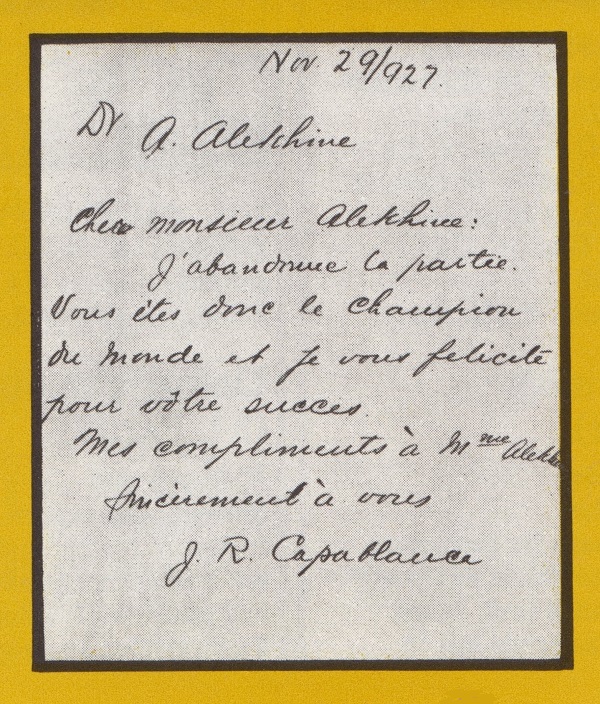 Nov. 29/927.
Dr A. Alekhine
Cher monsieur Alekhine:
J'abandonne la partie.
Vous êtes donc le champion
du monde et je vous felicite
pour vôtre succes.
Mes compliments à Mme Alekh
Sincèrement à vous
J. R. Capablanca